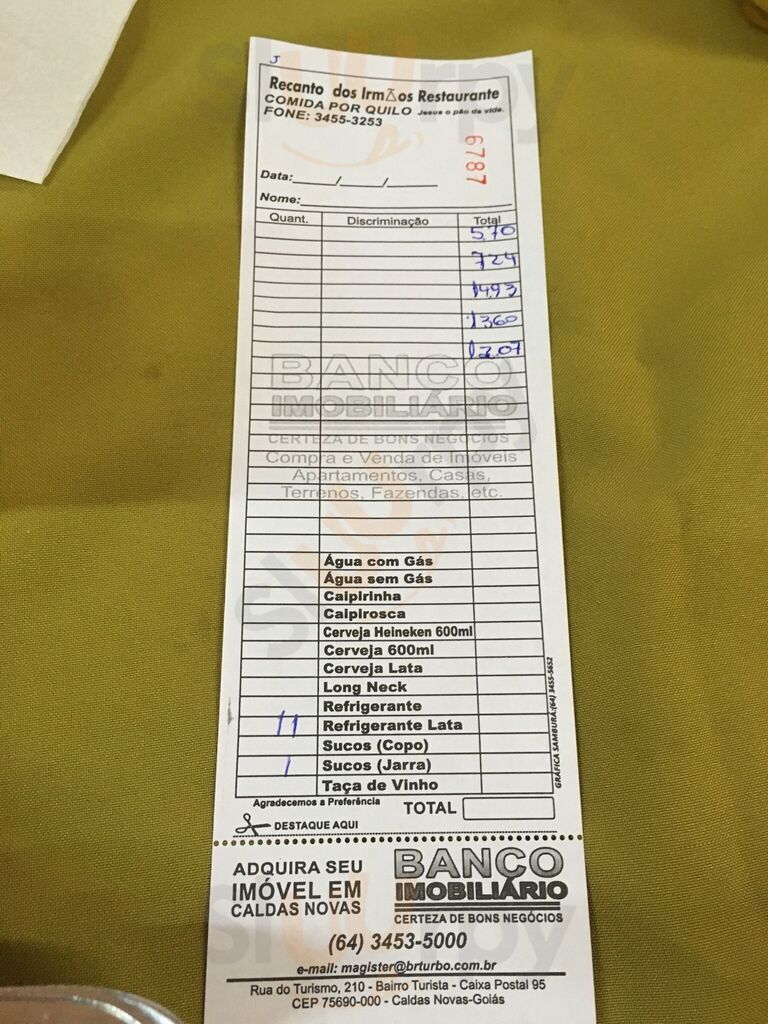 J
Recanto dos Irmãos Restaurante
COMIDA POR QUILO Jesus o pão da vida.
FONE: 3455-3253
6787
Data:____/____/____
Nome:
Quant. Discriminação Total
5,70
7,24
14,93
13,60
12,07
BANCO
IMOBILIÁRIO
CERTEZA DE BONS NEGÓCIOS
Compra e Venda de Imóveis
Apartamentos, Casas,
Terrenos, Fazendas, etc.
Água com Gás
Água sem Gás
Caipirinha
Caipirosca
Cerveja Heineken 600ml
Cerveja 600ml
Cerveja Lata
Long Neck
Refrigerante
11 Refrigerante Lata
Sucos (Copo)
1 Sucos (Jarra)
Taça de Vinho
GRÁFICA SAMBURÁ:(64) 3455-5652
Agradecemos a Preferência TOTAL
DESTAQUE AQUI
ADQUIRA SEU
IMÓVEL EM
CALDAS NOVAS
BANCO
IMOBILIÁRIO
CERTEZA DE BONS NEGÓCIOS
(64) 3453-5000
e-mail: magister@brturbo.com.br
Rua do Turismo, 210 - Bairro Turista - Caixa Postal 95
CEP 75690-000 - Caldas Novas-Goiás
sluurpy
sluurpy
sluurpy